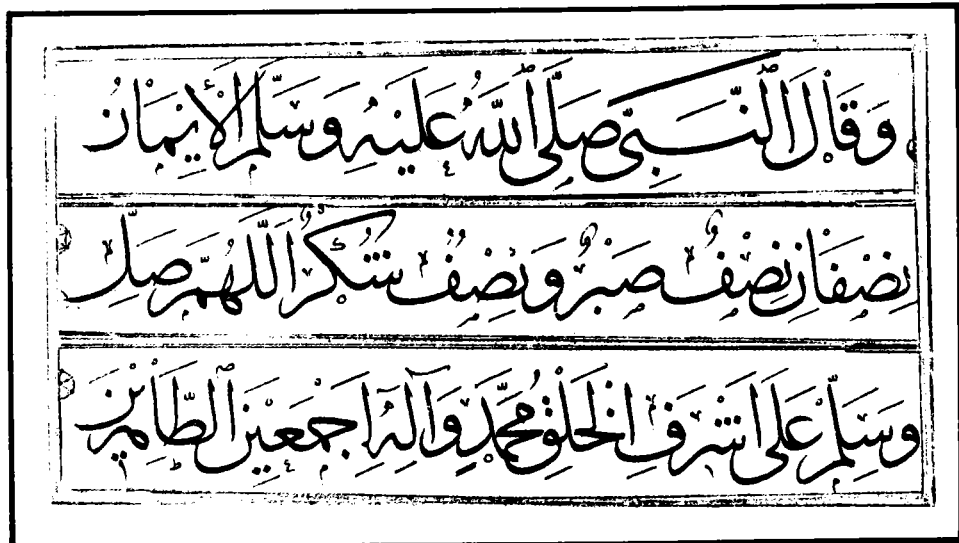 وَقَالَ النَّبِيُّ صَلَّى اللهُ عَلَيْهِ وَسَلَّمَ الْأِيمَانُ
نِصْفَانِ نِصْفٌ صَبْرٌ وَنِصْفٌ شُكْرٌ اَللّٰهُمَّ صَلِّ
وَسَلِّمْ عَلَى اَشْرَفِ الْخَلْقِ مُحَمَّدٍ وَآلِهِ اَجْمَعِينَ الطَّاهِرِينَ